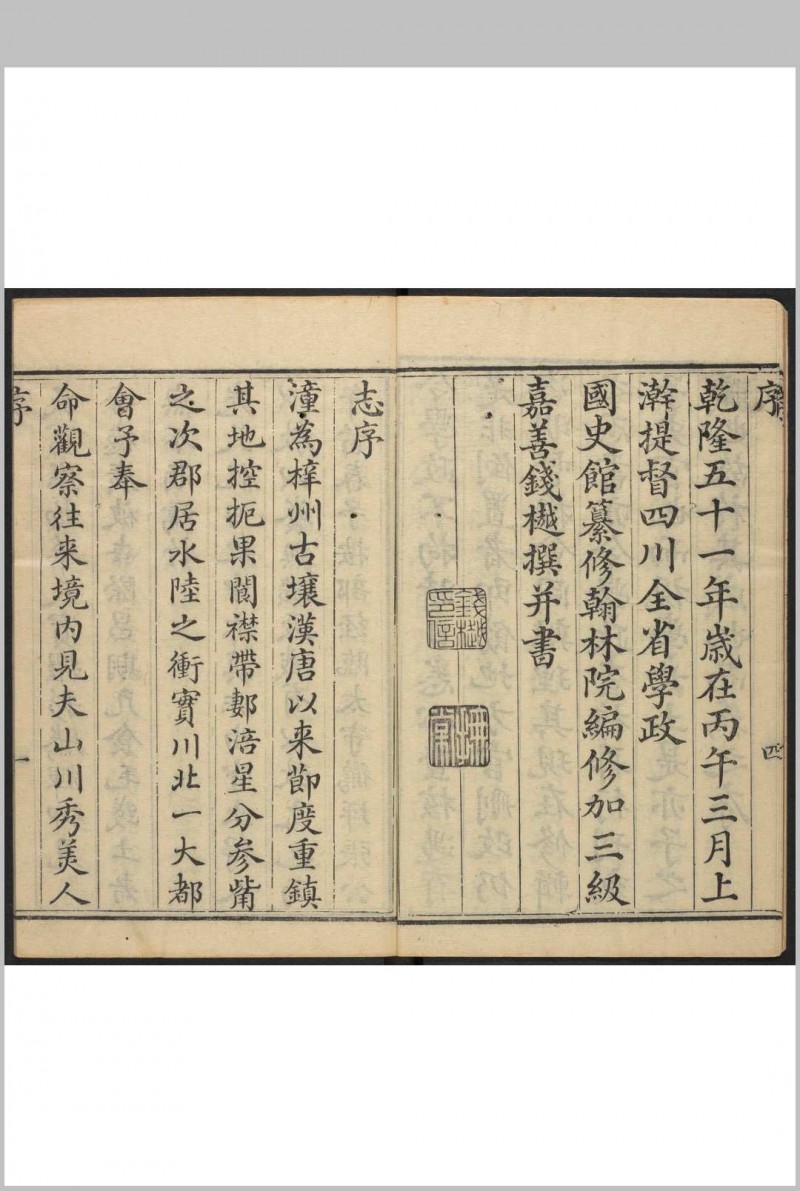 序
四
乾隆五十一年歲在丙午三月上
澣提督四川全省學政
國史館纂修翰林院編修加三級
嘉善錢樾撰并書
錢樾印信
志序
潼為梓州古壤漢唐以来節度重鎮
其地控扼果閬襟帶郪涪星分参觜
之次郡居水陸之衝實川北一大都
會予奉
命觀察往来境内見夫山川秀美人
序
一